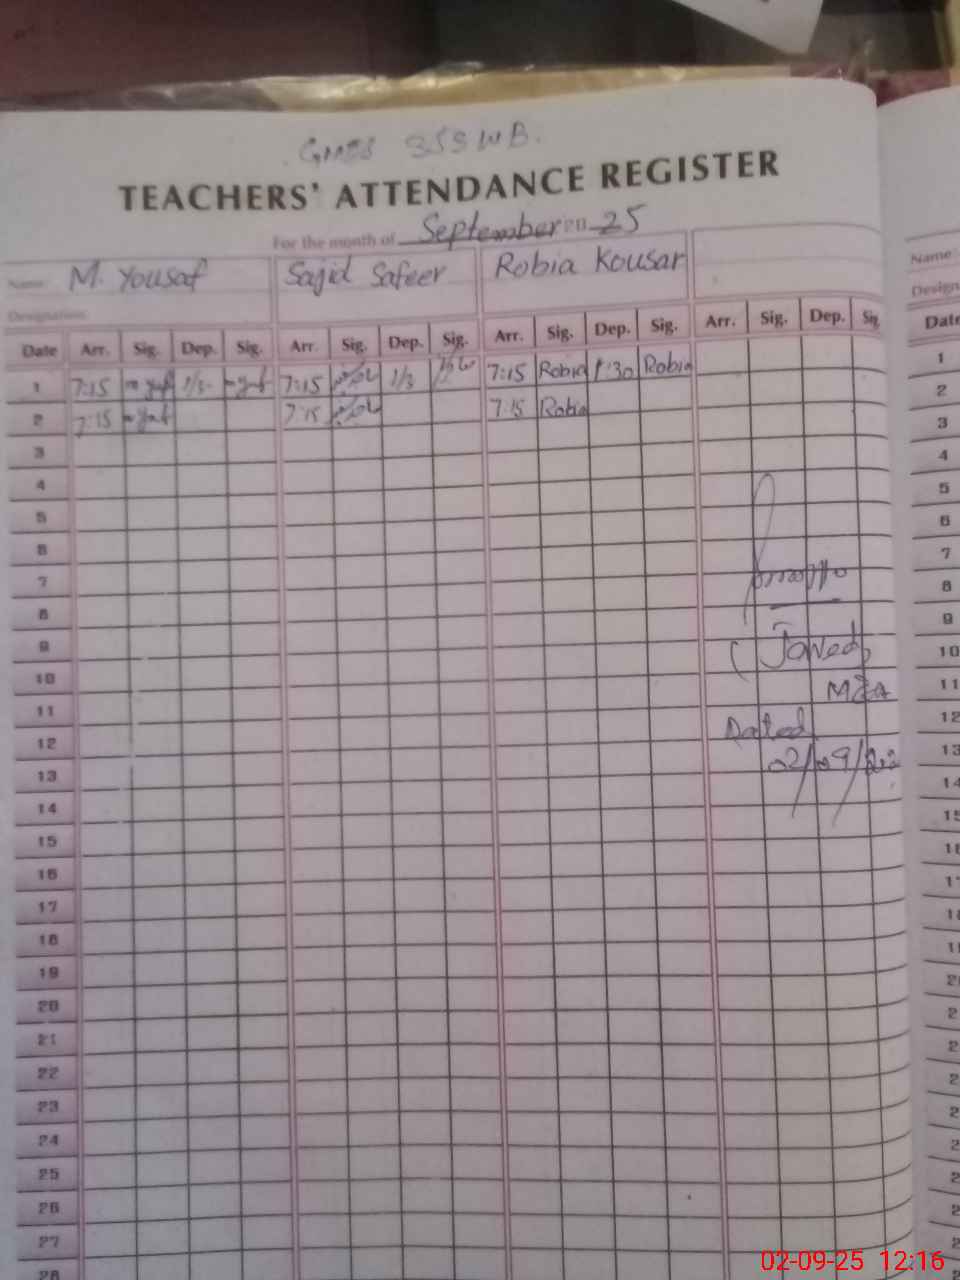 353 WB.
TEACHERS' ATTENDANCE REGISTER
For the month of September 20 25
Name M. Yousaf Sajid Safeer Robia Kousar
Designation
Date Arr. Sig. Dep. Sig. Arr. Sig. Dep. Sig. Arr. Sig. Dep. Sig. Arr. Sig. Dep. Sig
1 7:15 1/3 7:15 1/3 7:15 Robia 1:30 Robia
2 7:15 7:15 7:15 Robia
3
4
5
6
7
8
9
10
11
12
13
14
15
16
17
18
19
20
21
22
23
24
25
26
27
28
(Javed)
MEA
Dated
02/09/
Name
Design
Date
1
2
3
4
5
6
7
8
9
10
11
12
13
14
15
02-09-25 12:16